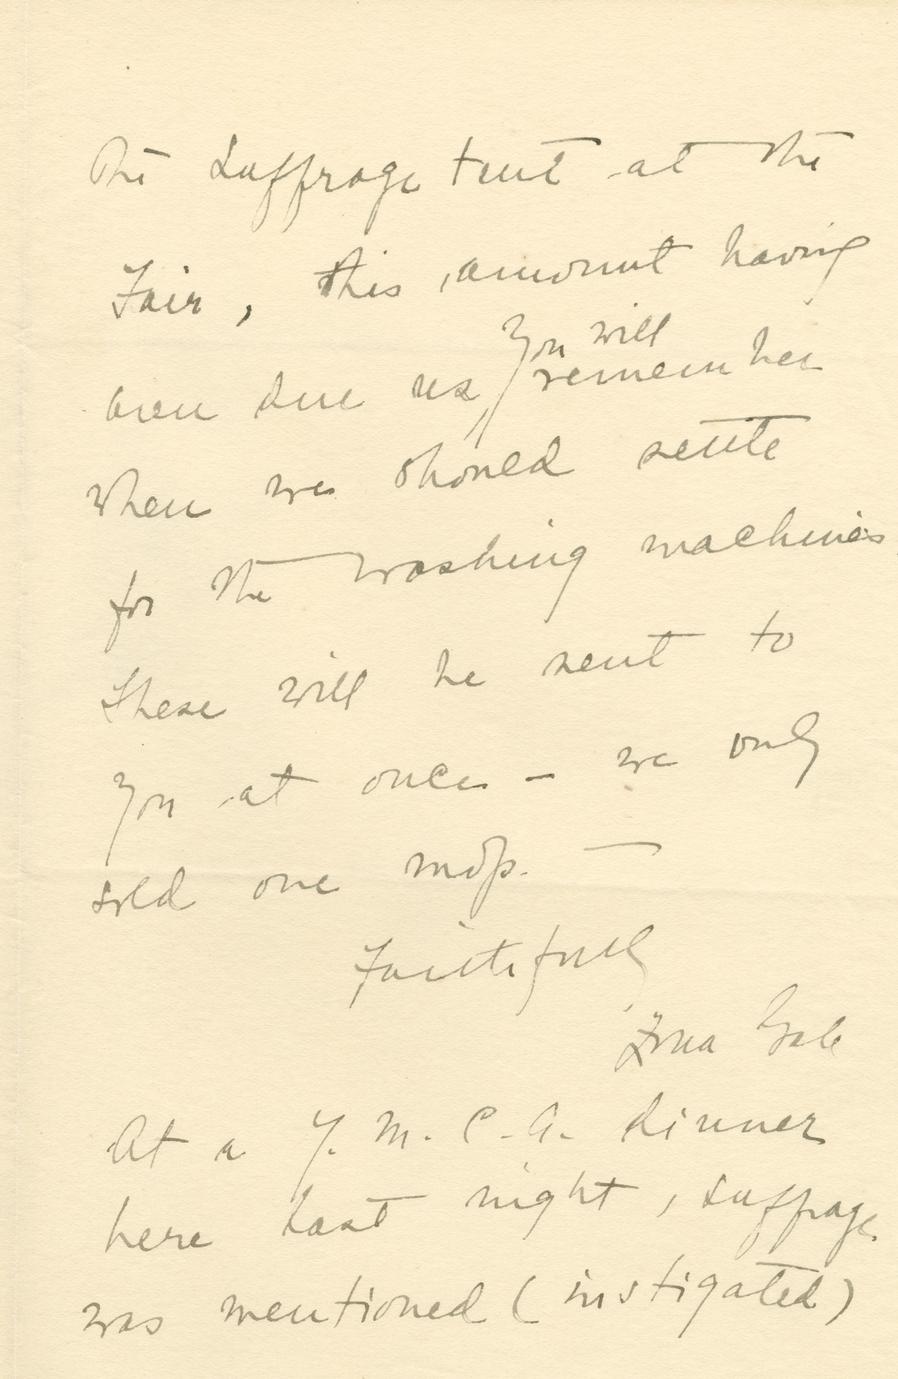 the Suffrage tent at the
Fair, this amount having
been due us, you will
remember
when we should settle
for the washing machines
These will be sent to
you at once – we only
sold one mop. —
Faithfully
Zona Gale
At a Y. M. C. A. dinner
here last night, suffrage
was mentioned (instigated)